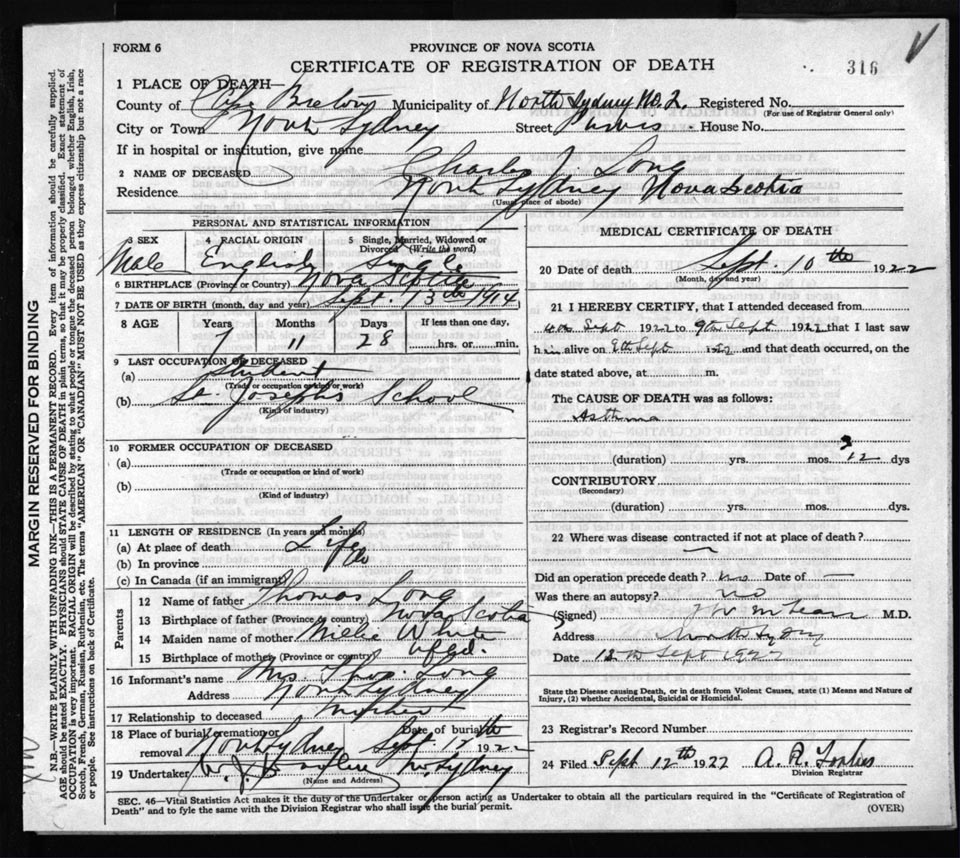 FORM 6
PROVINCE OF NOVA SCOTIA
CERTIFICATE OF REGISTRATION OF DEATH
316
1 PLACE OF DEATH—
County of Cape Breton Municipality of North Sydney No. 2. Registered No.
(For use of Registrar General only)
City or Town North Sydney Street Purves House No.
If in hospital or institution, give name
2 NAME OF DECEASED Charles J. Long
Residence North Sydney Nova Scotia
(Usual place of abode)
PERSONAL AND STATISTICAL INFORMATION
3 SEX 4 RACIAL ORIGIN 5 Single, Married, Widowed or Divorced (Write the word)
Male English Single
6 BIRTHPLACE (Province or Country) Nova Scotia
7 DATE OF BIRTH (month, day and year) Sept. 13th 1914
8 AGE Years Months Days If less than one day,
7 11 28 hrs. or min.
9 LAST OCCUPATION OF DECEASED
(a) Student
(Trade or occupation or kind of work)
(b) St. Joseph's School
(Kind of industry)
10 FORMER OCCUPATION OF DECEASED
(a)
(Trade or occupation or kind of work)
(b)
(Kind of industry)
11 LENGTH OF RESIDENCE (In years and months)
(a) At place of death Life
(b) In province
(c) In Canada (if an immigrant)
Parents
12 Name of father Thomas Long
13 Birthplace of father (Province or country) Nova Scotia
14 Maiden name of mother Millie White
15 Birthplace of mother (Province or country) Nfld.
16 Informant's name Mrs. Thos. Long
Address North Sydney
17 Relationship to deceased Mother
18 Place of burial, cremation or removal North Sydney Date of burial Sept. 12th 1922
19 Undertaker N. Sydney
(Name and Address)
MEDICAL CERTIFICATE OF DEATH
20 Date of death Sept. 10th 1922
(Month, day and year)
21 I HEREBY CERTIFY, that I attended deceased from
Sept 1922 to 9th Sept 1922 that I last saw
him alive on 9th Sept 1922 and that death occurred, on the
date stated above, at m.
The CAUSE OF DEATH was as follows:
Asthma
(duration) yrs. mos. 12 dys
CONTRIBUTORY
(Secondary)
(duration) yrs. mos. dys.
22 Where was disease contracted if not at place of death?
Did an operation precede death? no Date of —
Was there an autopsy? no
(Signed) McLean M.D.
Address North Sydney
Date 12th Sept 1922
State the Disease causing Death, or in death from Violent Causes, state (1) Means and Nature of Injury, (2) whether Accidental, Suicidal or Homicidal.
23 Registrar's Record Number
24 Filed Sept 12th 1922 A. R. Forbes
Division Registrar
SEC. 46—Vital Statistics Act makes it the duty of the Undertaker or person acting as Undertaker to obtain all the particulars required in the "Certificate of Registration of
Death" and to fyle the same with the Division Registrar who shall issue the burial permit. (OVER)
MARGIN RESERVED FOR BINDING
N.B.—WRITE PLAINLY WITH UNFADING INK—THIS IS A PERMANENT RECORD. Every item of information should be carefully supplied.
AGE should be stated EXACTLY. PHYSICIANS should STATE CAUSE OF DEATH in plain terms, so that it may be properly classified. Exact statement of
OCCUPATION is very important. RACIAL ORIGIN will be described by stating to what people or tongue the deceased person belonged whether English, Irish,
Scotch, French, German, Russian, Ruthenian, etc. The terms "AMERICAN" OR "CANADIAN" MUST NOT BE USED as they express citizenship but not a race
or people. See instructions on back of Certificate.